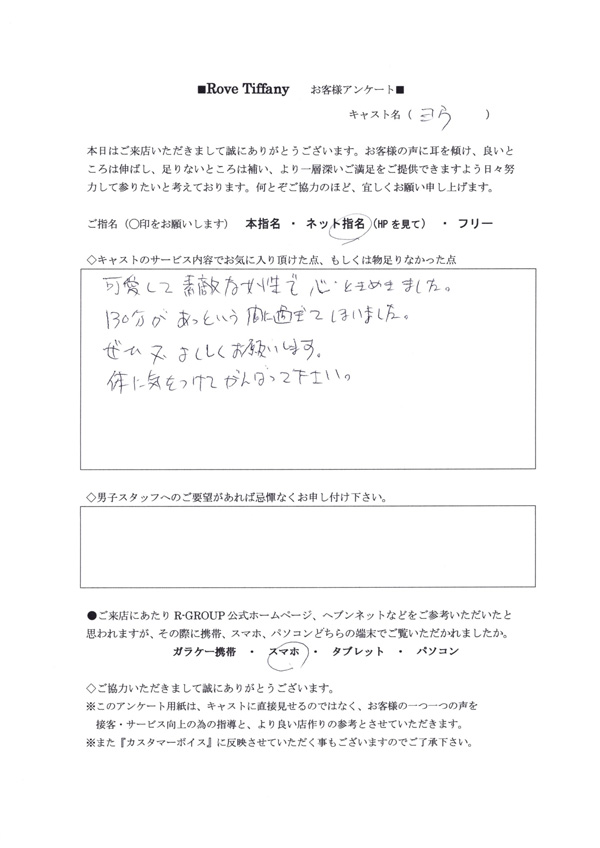 ■Rove Tiffany お客様アンケート■
キャスト名（ ヨウ ）
本日はご来店いただきまして誠にありがとうございます。お客様の声に耳を傾け、良いと
ころは伸ばし、足りないところは補い、より一層深いご満足をご提供できますよう日々努
力して参りたいと考えております。何とぞご協力のほど、宜しくお願い申し上げます。
ご指名（〇印をお願いします） 本指名 ・ ネット指名（HPを見て） ・ フリー
◇キャストのサービス内容でお気に入り頂けた点、もしくは物足りなかった点
可愛して素敵な女性で心ときめきました。
130分があっという間に過ぎてしまいました。
ぜひ又よろしくお願いします。
体に気をつけてがんばって下さい。
◇男子スタッフへのご要望があれば忌憚なくお申し付け下さい。
●ご来店にあたり R-GROUP 公式ホームページ、ヘブンネットなどをご参考いただいたと
思われますが、その際に携帯、スマホ、パソコンどちらの端末でご覧いただかれましたか。
ガラケー携帯 ・ スマホ ・ タブレット ・ パソコン
◇ご協力いただきまして誠にありがとうございます。
※このアンケート用紙は、キャストに直接見せるのではなく、お客様の一つ一つの声を
接客・サービス向上の為の指導と、より良い店作りの参考とさせていただきます。
※また『カスタマーボイス』に反映させていただく事もございますのでご了承下さい。